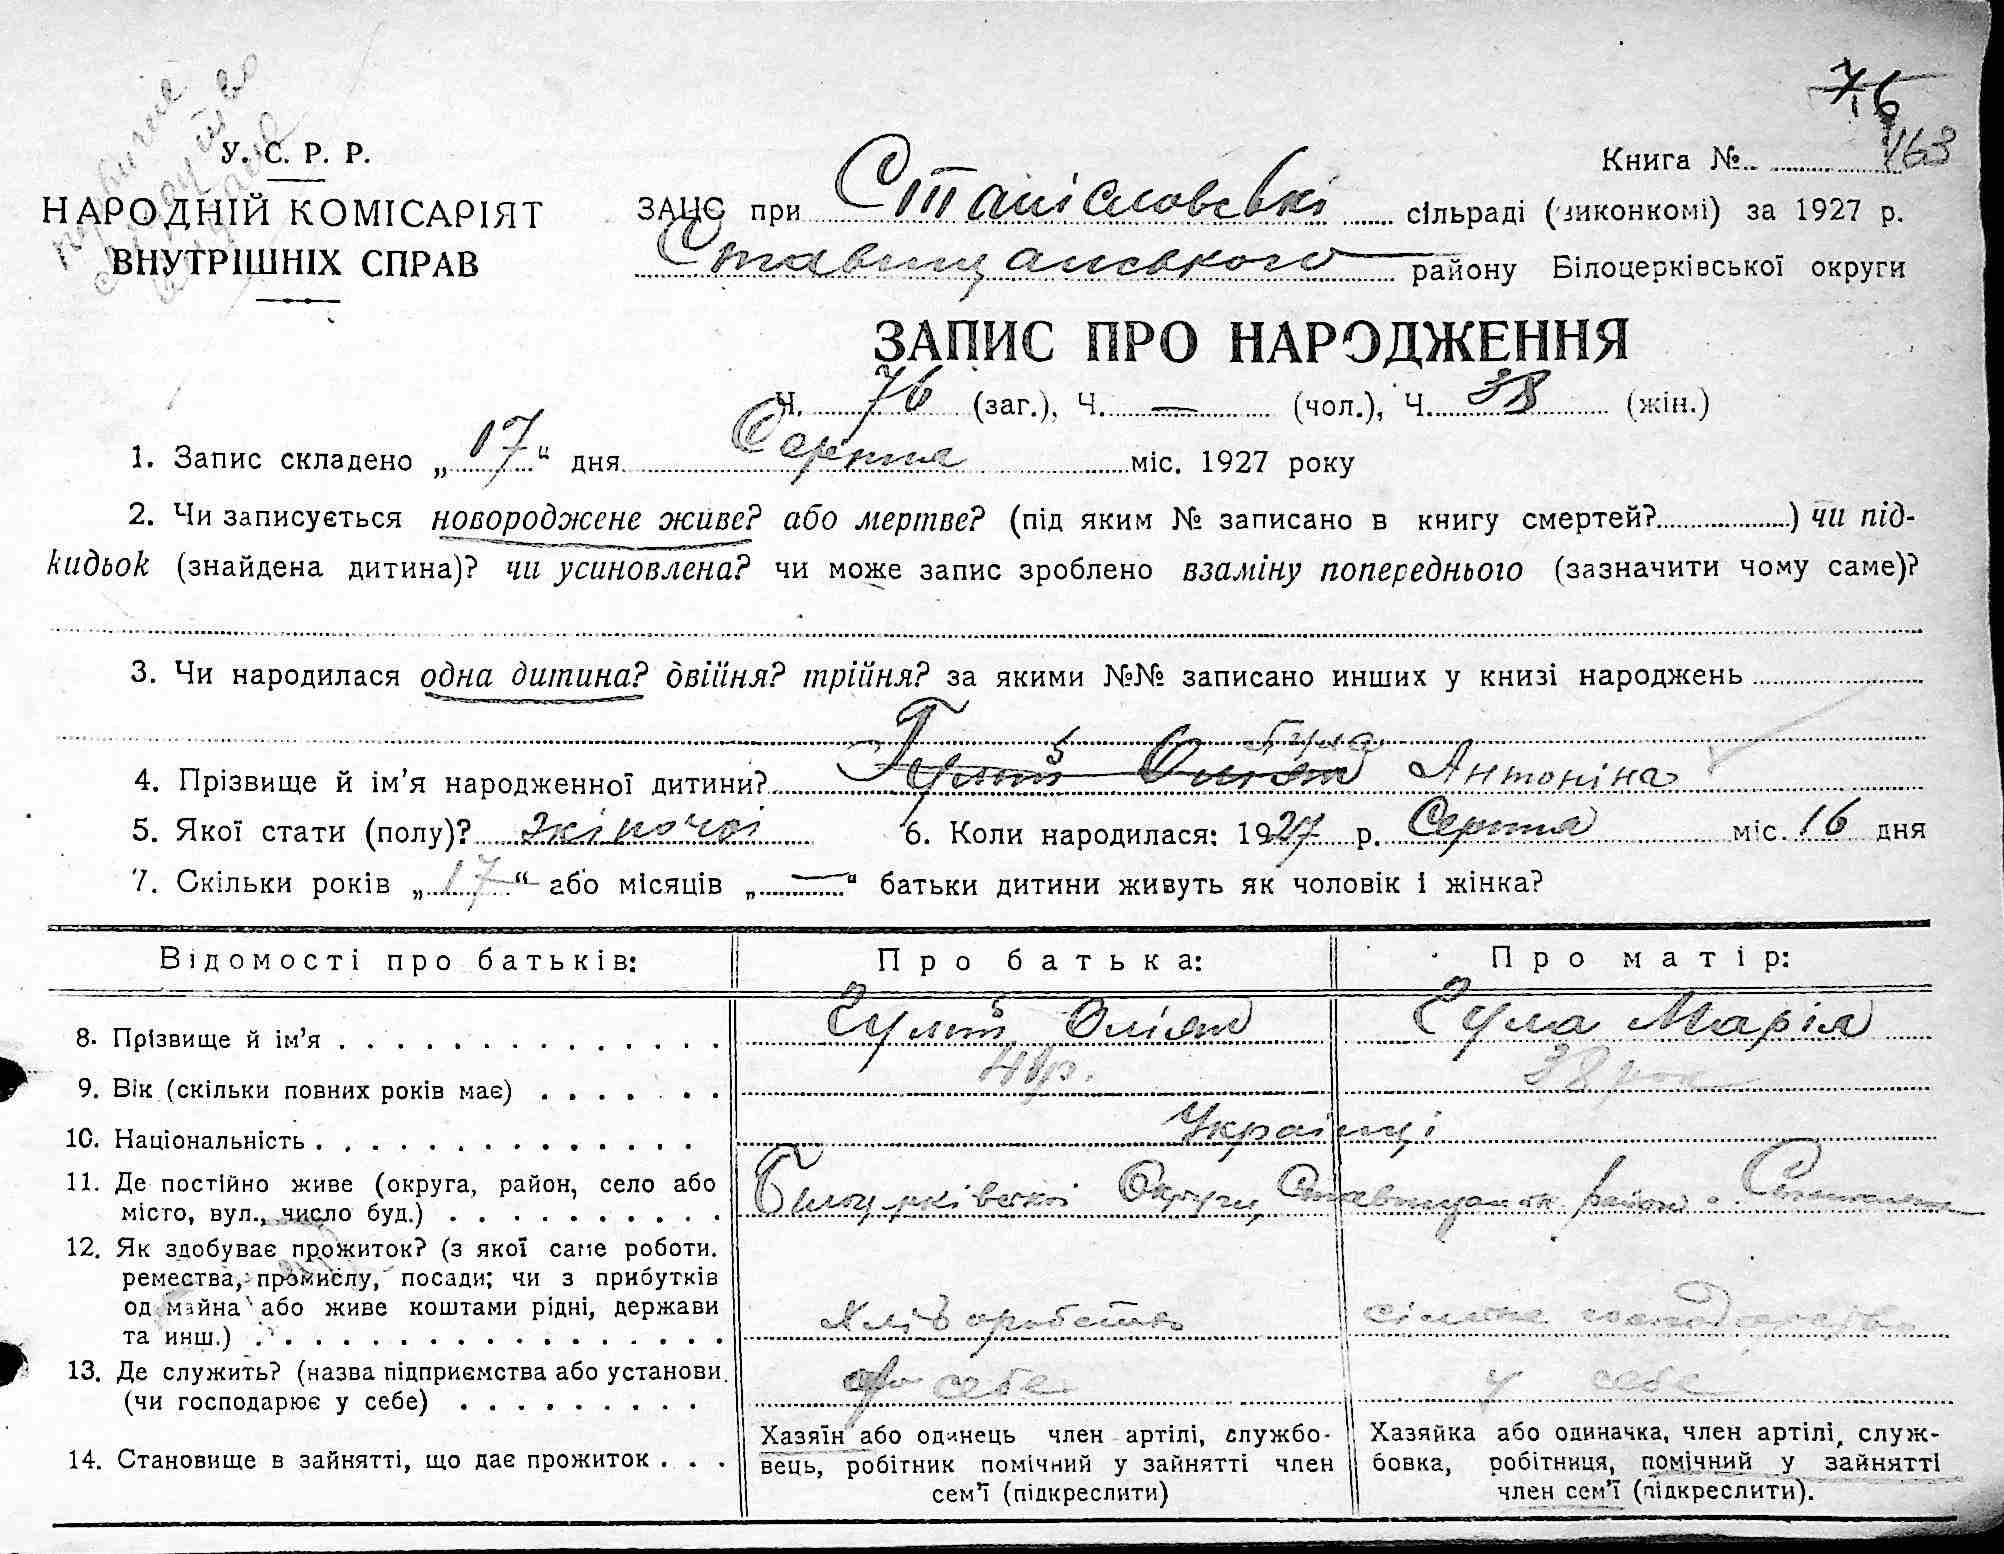 76
163
У. С. Р. Р.
НАРОДНІЙ КОМІСАРІЯТ
ВНУТРІШНІХ СПРАВ
Книга №
ЗАЦС при Станіславовській сільраді (виконкомі) за 1927 р.
Ставищанського району Білоцерківської округи
ЗАПИС ПРО НАРОДЖЕННЯ
Ч. 76 (заг.), Ч. — (чол.), Ч. 38 (жін.)
1. Запис складено „17“ дня Серпня міс. 1927 року
2. Чи записується новороджене живе? або мертве? (під яким № записано в книгу смертей?) чи під-
кидьок (знайдена дитина)? чи усиновлена? чи може запис зроблено взаміну попереднього (зазначити чому саме)?
3. Чи народилася одна дитина? двійня? трійня? за якими №№ записано инших у книзі народжень
4. Прізвище й ім'я народженної дитини? Антоніна
5. Якої стати (полу)? жіночої 6. Коли народилася: 1927 р. Серпня міс. 16 дня
7. Скільки років „17“ або місяців „—“ батьки дитини живуть як чоловік і жінка?
Відомості про батьків: Про батька: Про матір:
8. Прізвище й ім'я Гулий Гула Марія
9. Вік (скільки повних років має) 41р. 38
10. Національність Українці
11. Де постійно живе (округа, район, село або
місто, вул., число буд.) Білоцерківської Округи, Ставищанськ район
12. Як здобуває прожиток? (з якої саме роботи.
ремества, промислу, посади; чи з прибутків
од майна або живе коштами рідні, держави
та инш.) Хліборобство сільське господарство
13. Де служить? (назва підприємства або установи.
(чи господарює у себе) себе у себе
14. Становище в зайнятті, що дає прожиток
Хазяїн або одинець член артілі, службо-
вець, робітник помічний у зайнятті член
сем'ї (підкреслити)
Хазяйка або одиначка, член артілі, служ-
бовка, робітниця, помічний у зайнятті
член сем'ї (підкреслити).